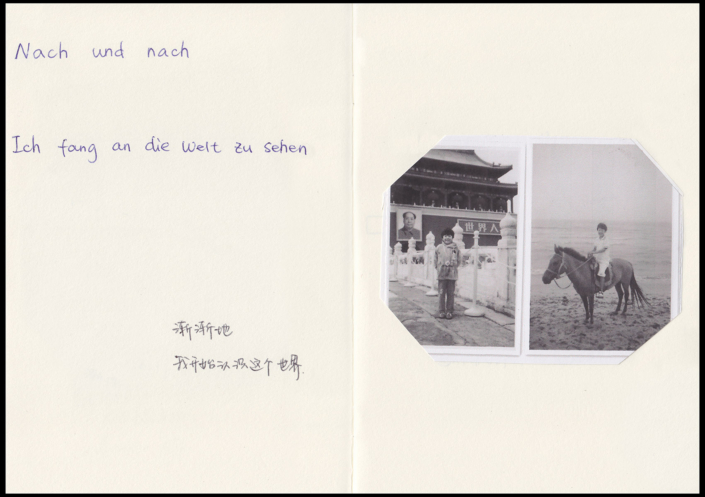 Nach und nach
Ich fang an die Welt zu sehen
渐渐地
我开始认识这个世界.
世界人